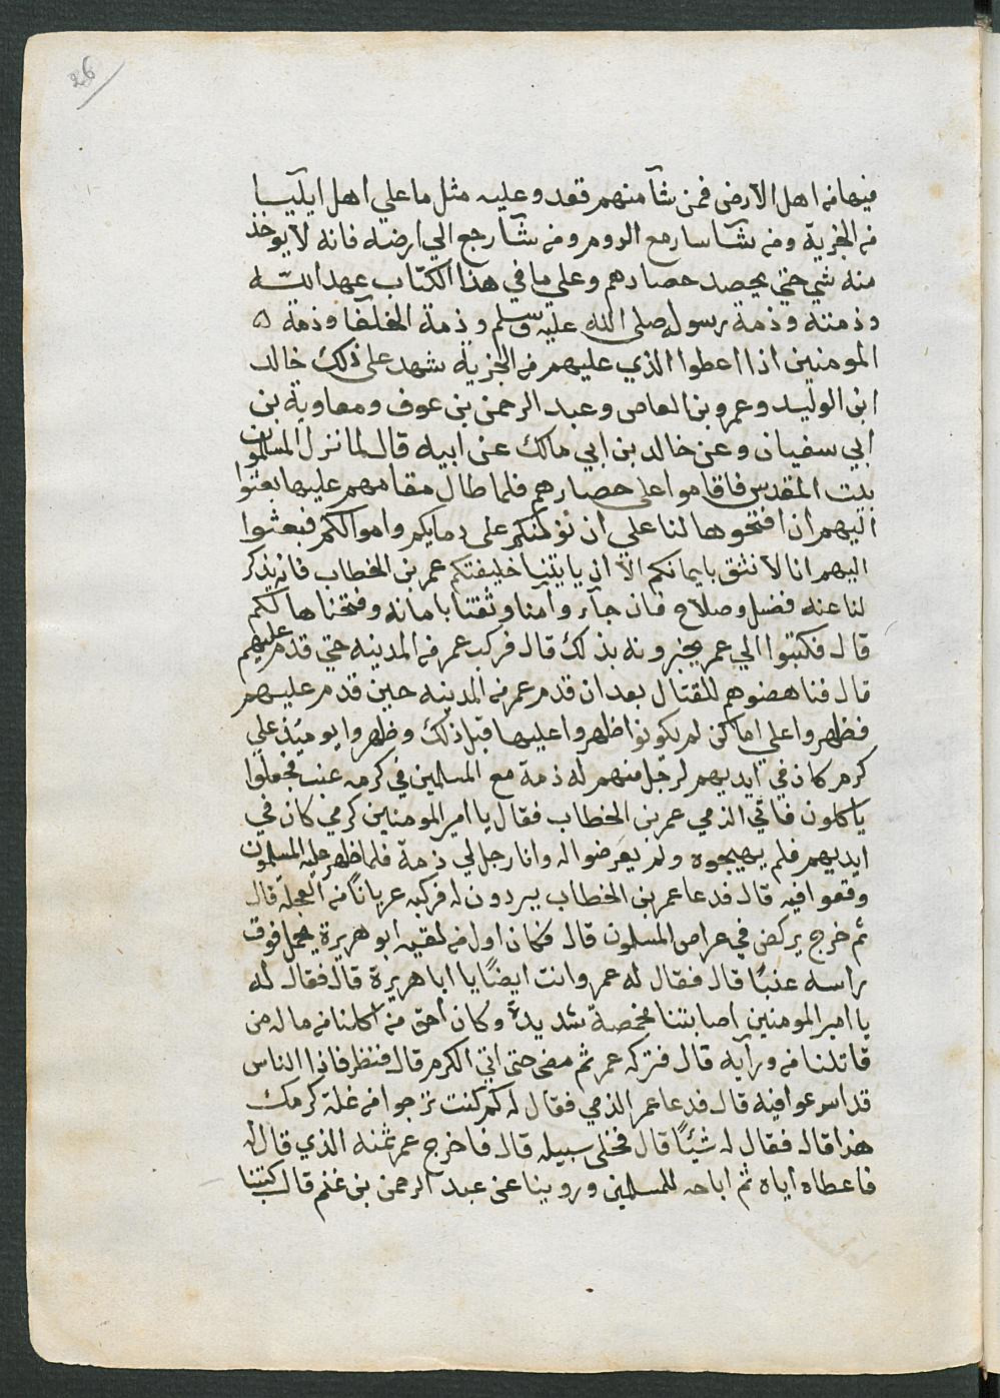 26
فيها من اهل الارض فمن شآ منهم قعد وعليه مثل ما علي اهل ايليآ
من الجزية ومن شآ سار مع الروم ومن شآ رجع الي ارضه فانه لا يوخذ
منه شي حتي يحصد حصادهم وعلي ما في هذا الكتاب عهد الله
وذمته وذمة رسوله صلى الله عليه وسلم وذمة الخلفا وذمة
المومنين اذا اعطوا الذي عليهم من الجزية شهد على ذلك خالد
ابن الوليد وعمرو بن العاصى وعبد الرحمن بن عوف ومعاوية بن
ابي سفيان وعن خالد بن ابي مالك عن ابيه قال لما نزل المسلمون
بيت المقدس فاقاموا على حصارهم فلما طال مقامهم عليها بعثوا
اليهم ان افتحوها لنا علي ان نؤمنكم على دمايكم واموالكم فبعثوا
اليهم انا لا نثق بايمانكم الا ان ياتينا خليفتكم عمر بن الخطاب فانه يذكر
لنا عنه فضل وصلاح فان جآء وآمنا وثقنا بامانه وفتحناها لكم
قال فكتبوا الي عمر يخبرونه بذلك قال فركب عمر من المدينه حتي قدم عليهم
قال فناهضوهم للقتال بعد ان قدم عمر من المدينه حين قدم عليهم
فظهروا علي اماكن لم يكونوا ظهروا عليها قبل ذلك وظهروا يوميئذ علي
كرم كان في ايديهم لرجل منهم له ذمة مع المسلمين في كرمه عنب فجعلوا
ياكلون فاتي الذمي عمر بن الخطاب فقال يا امير المومنين كرمي كان في
ايديهم فلم يهيجوه ولم يعرضوا له وانا رجل لي ذمة فلما ظهر عليه المسلمون
وقعوا فيه قال فدعا عمر بن الخطاب ببردون له فركبه عرياناً من العجلة قال
ثم خرج يركض في عراص المسلمون قال فكان اول من لقيه ابو هريرة يحمل فوق
راسه عنبًا قال فقال له عمر وانت ايضًا يا ابا هريرة قال فقال له
يا امير المومنين اصابتنا مخمصة شديدة وكان احق من اكلنا من ماله من
قاتلنا من ورآيه قال فتركه عمر ثم مضى حتى اتي الكرم قال فنظر فاذا الناس
قد اسرعوا فيه قال فدعا عمر الذمي فقال له كم كنت ترجوا من غلة كرمك
هذا قال فقال له شيًا قال فخلى سبيله قال فاخرج عمر ثمنه الذي قال له
فاعطاه اياه ثم اباحه للمسلمين وروينا عن عبد الرحمن بن غنم قال كتبنا